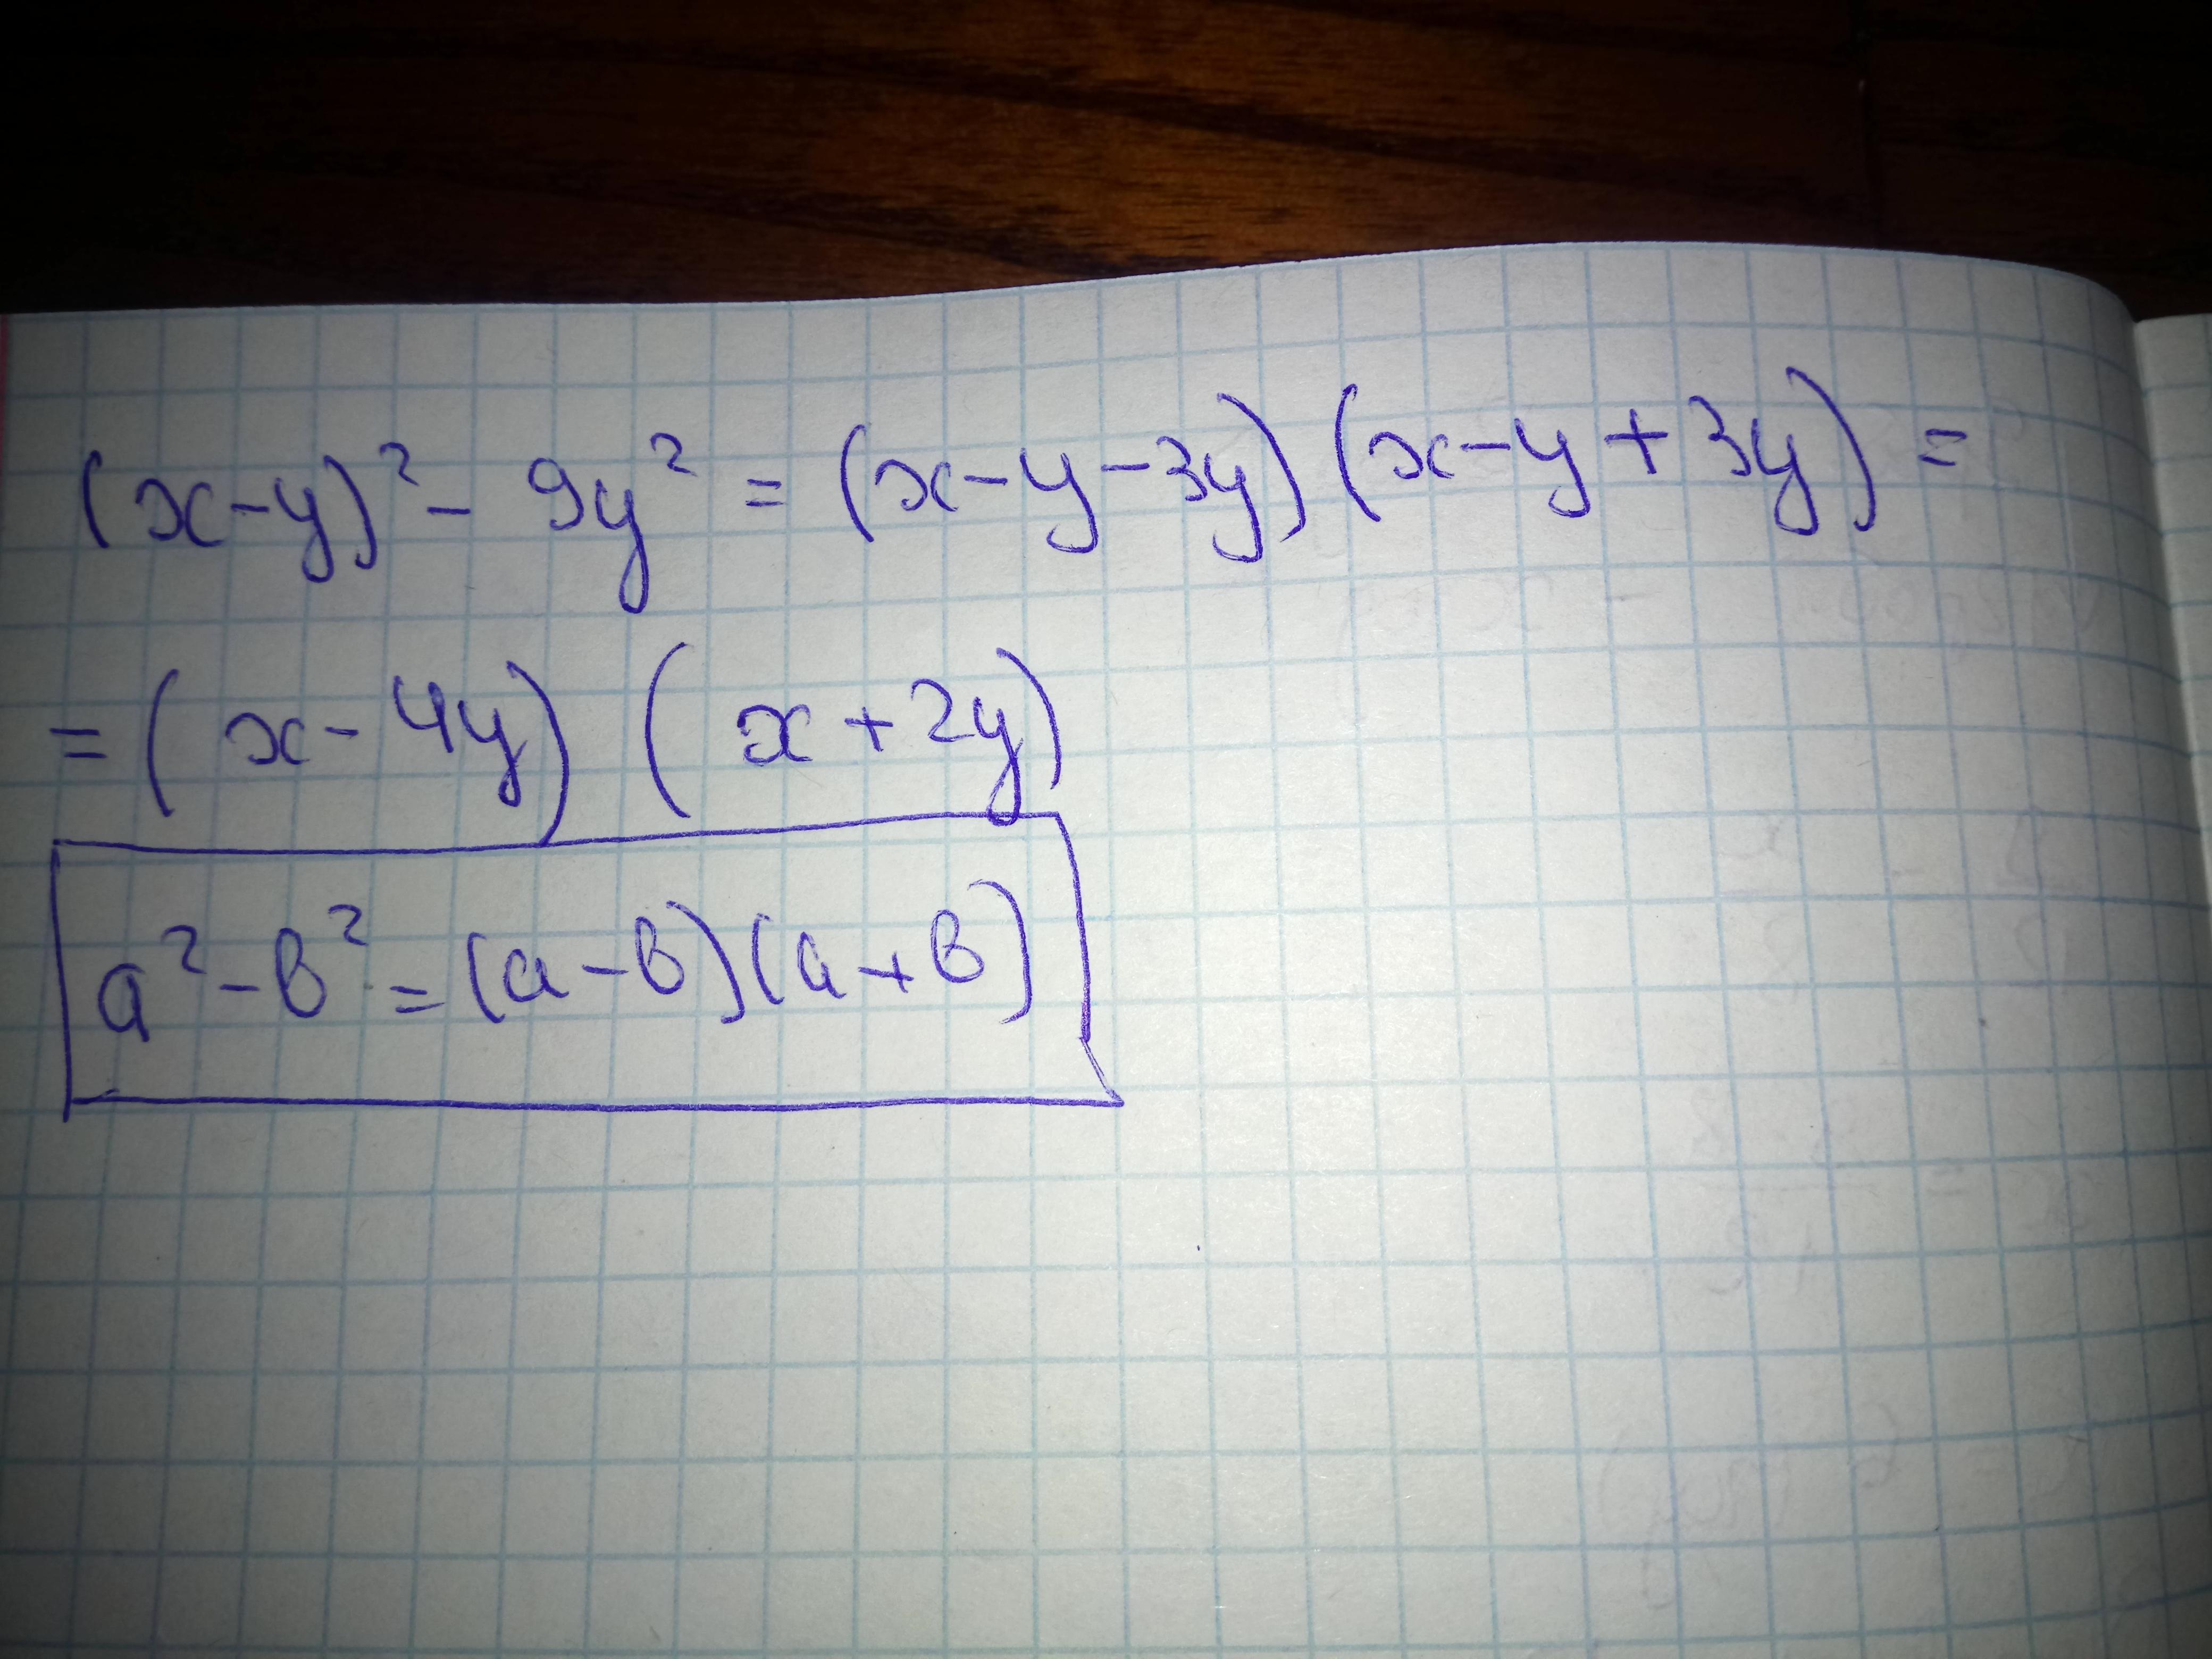 (x-y)² - 9y² = (x-y-3y)(x-y+3y) =
= (x-4y) (x+2y)
a² - в² = (a-в)(a+в)